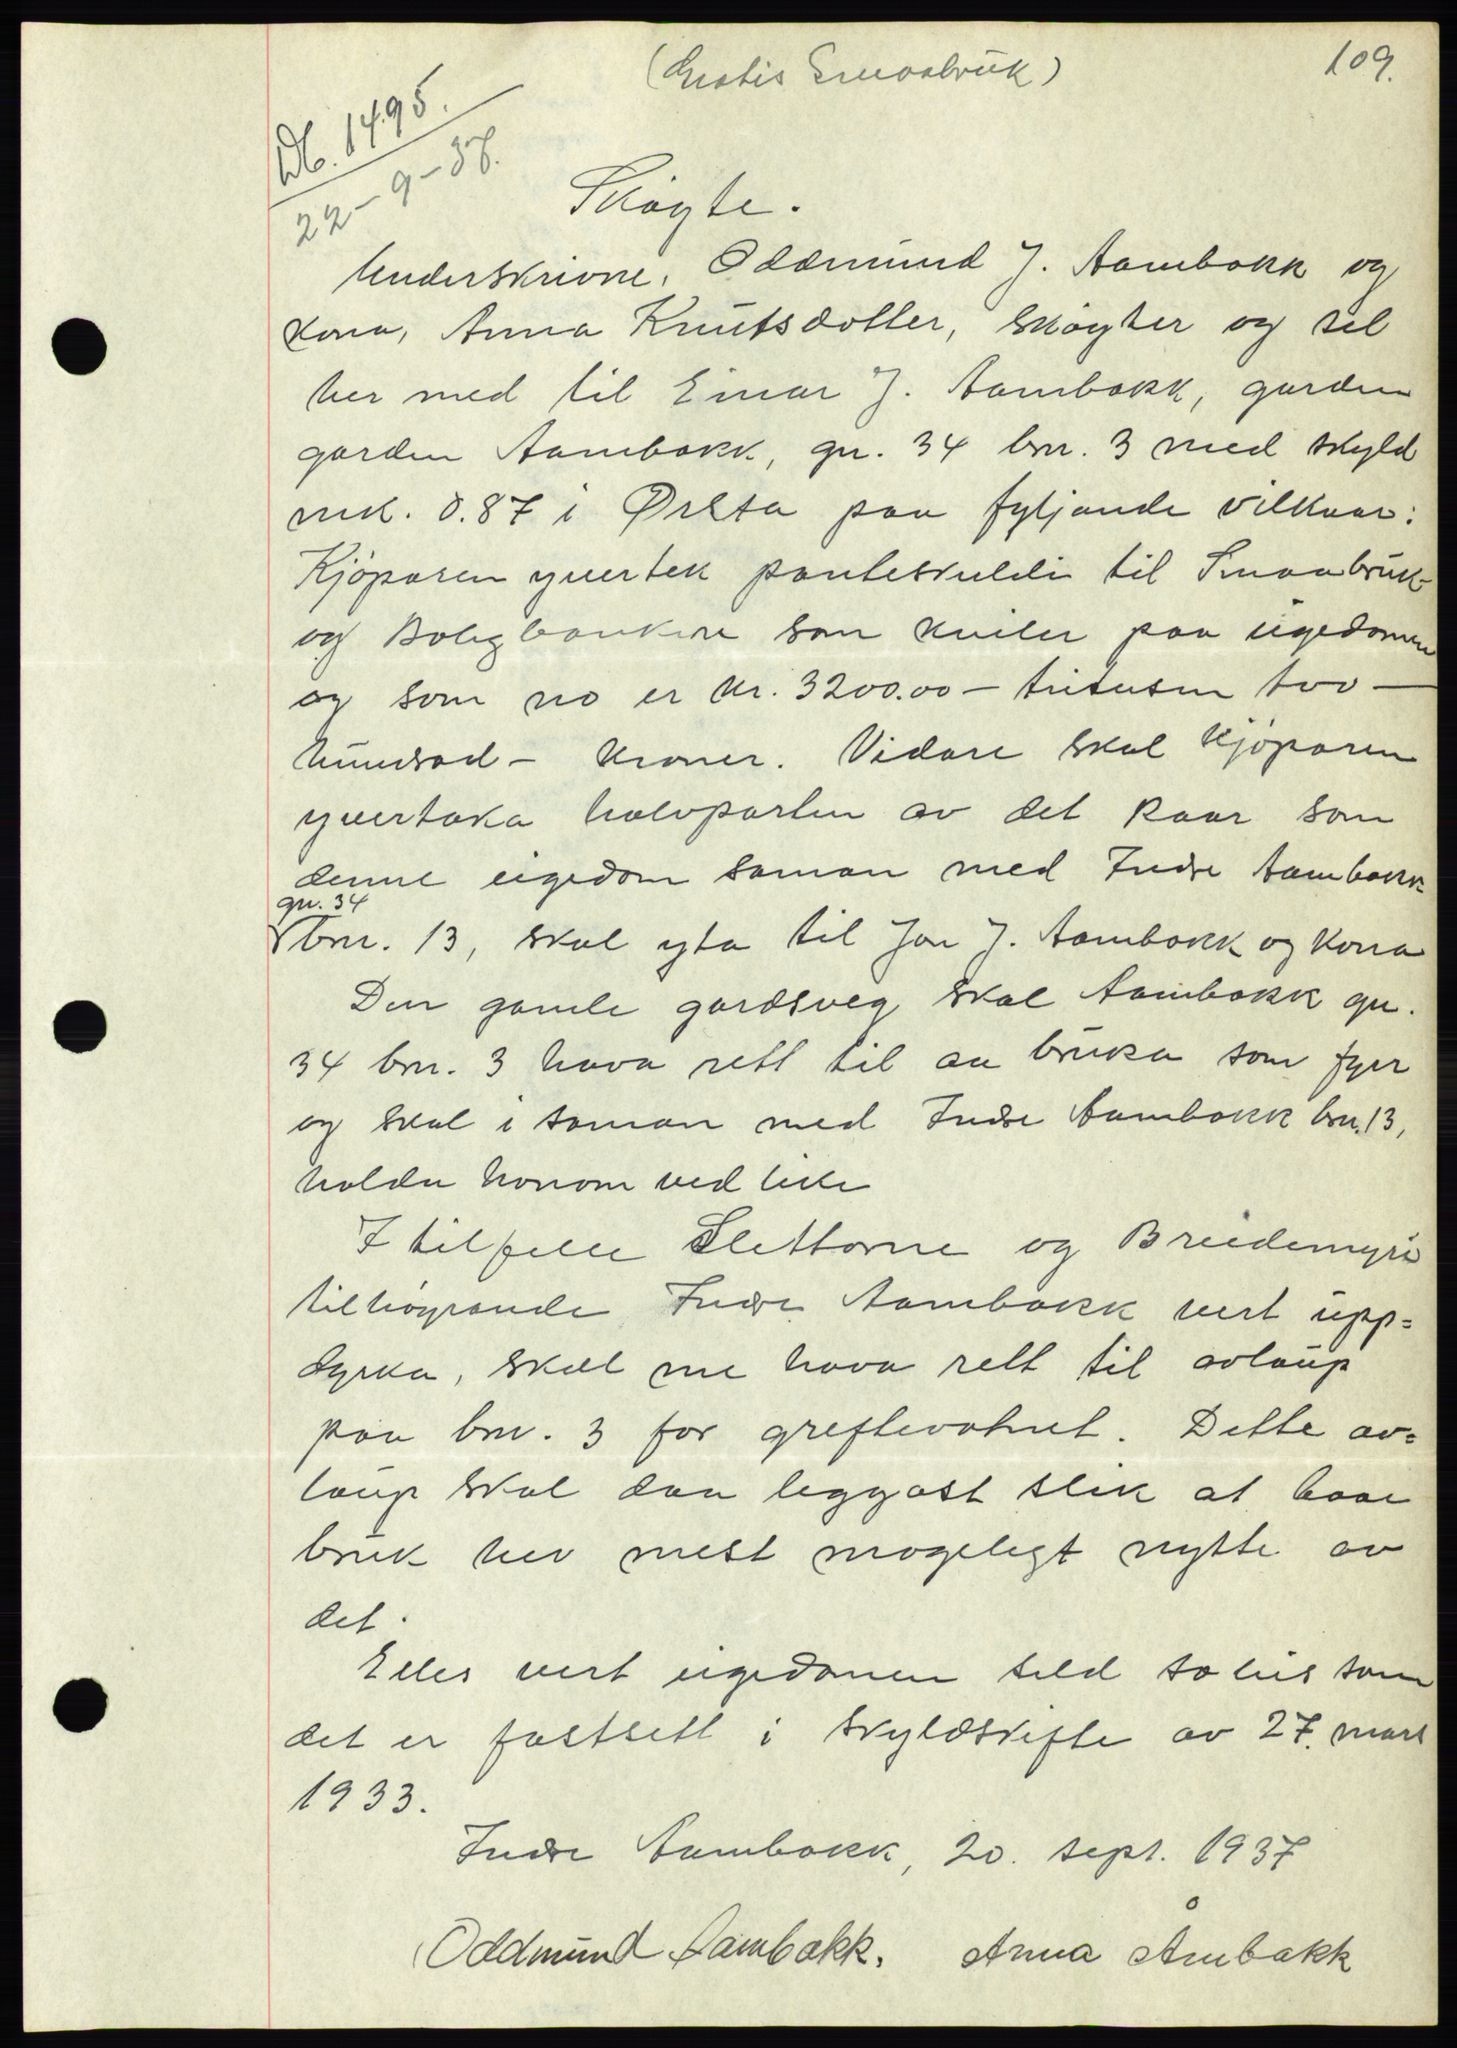 (Gratis Smaabruk)
109.
Db. 1495.
22-9-37.
Skøyte.
Underskrivne, Oddmund J. Aambakk og
kona, Anna Knutsdotter, skøyter og sel
her med til Einar J. Aambakk, garden
garden Aambakk, gn. 34 bn. 3 med skyld
mk. 0.87 i Ørsta paa fylgjande vilkaar:
Kjøparen yvertek panteskuldi til Smaabruk
og Boligbanken som kviler paa eigedomen
og som no er kr. 3200.00 – tritusen two –
hundrad – kroner. Vidare skal kjøparen
yvertaka halvparten av det kaar som
denne eigedom saman med Indre Aambakk
gn. 34
bn. 13, skal yta til Jon J. Aambakk og kona
Den gamle gardsveg skal Aambakk gn.
34 bn. 3 hava rett til aa bruka som fyrr
og skal i saman med Indre Aambakk bn. 13,
halda honom ved like
I tilfelle Slettorne og Breidemyra
tilhøyrande Indre Aambakk vert upp=
dyrka, skal me hava rett til avlaup
paa bnr. 3 for grøftevatnet. Dette av=
laup skal daa leggast slik at baae
bruk hev mest mogelegt nytte av
det.
Elles vert eigedomen seld soleis som
det er fastsett i skyldskifte av 27. mars
1933.
Indre Aambakk, 20. sept. 1937
Oddmund Aambakk. Anna Åmbakk